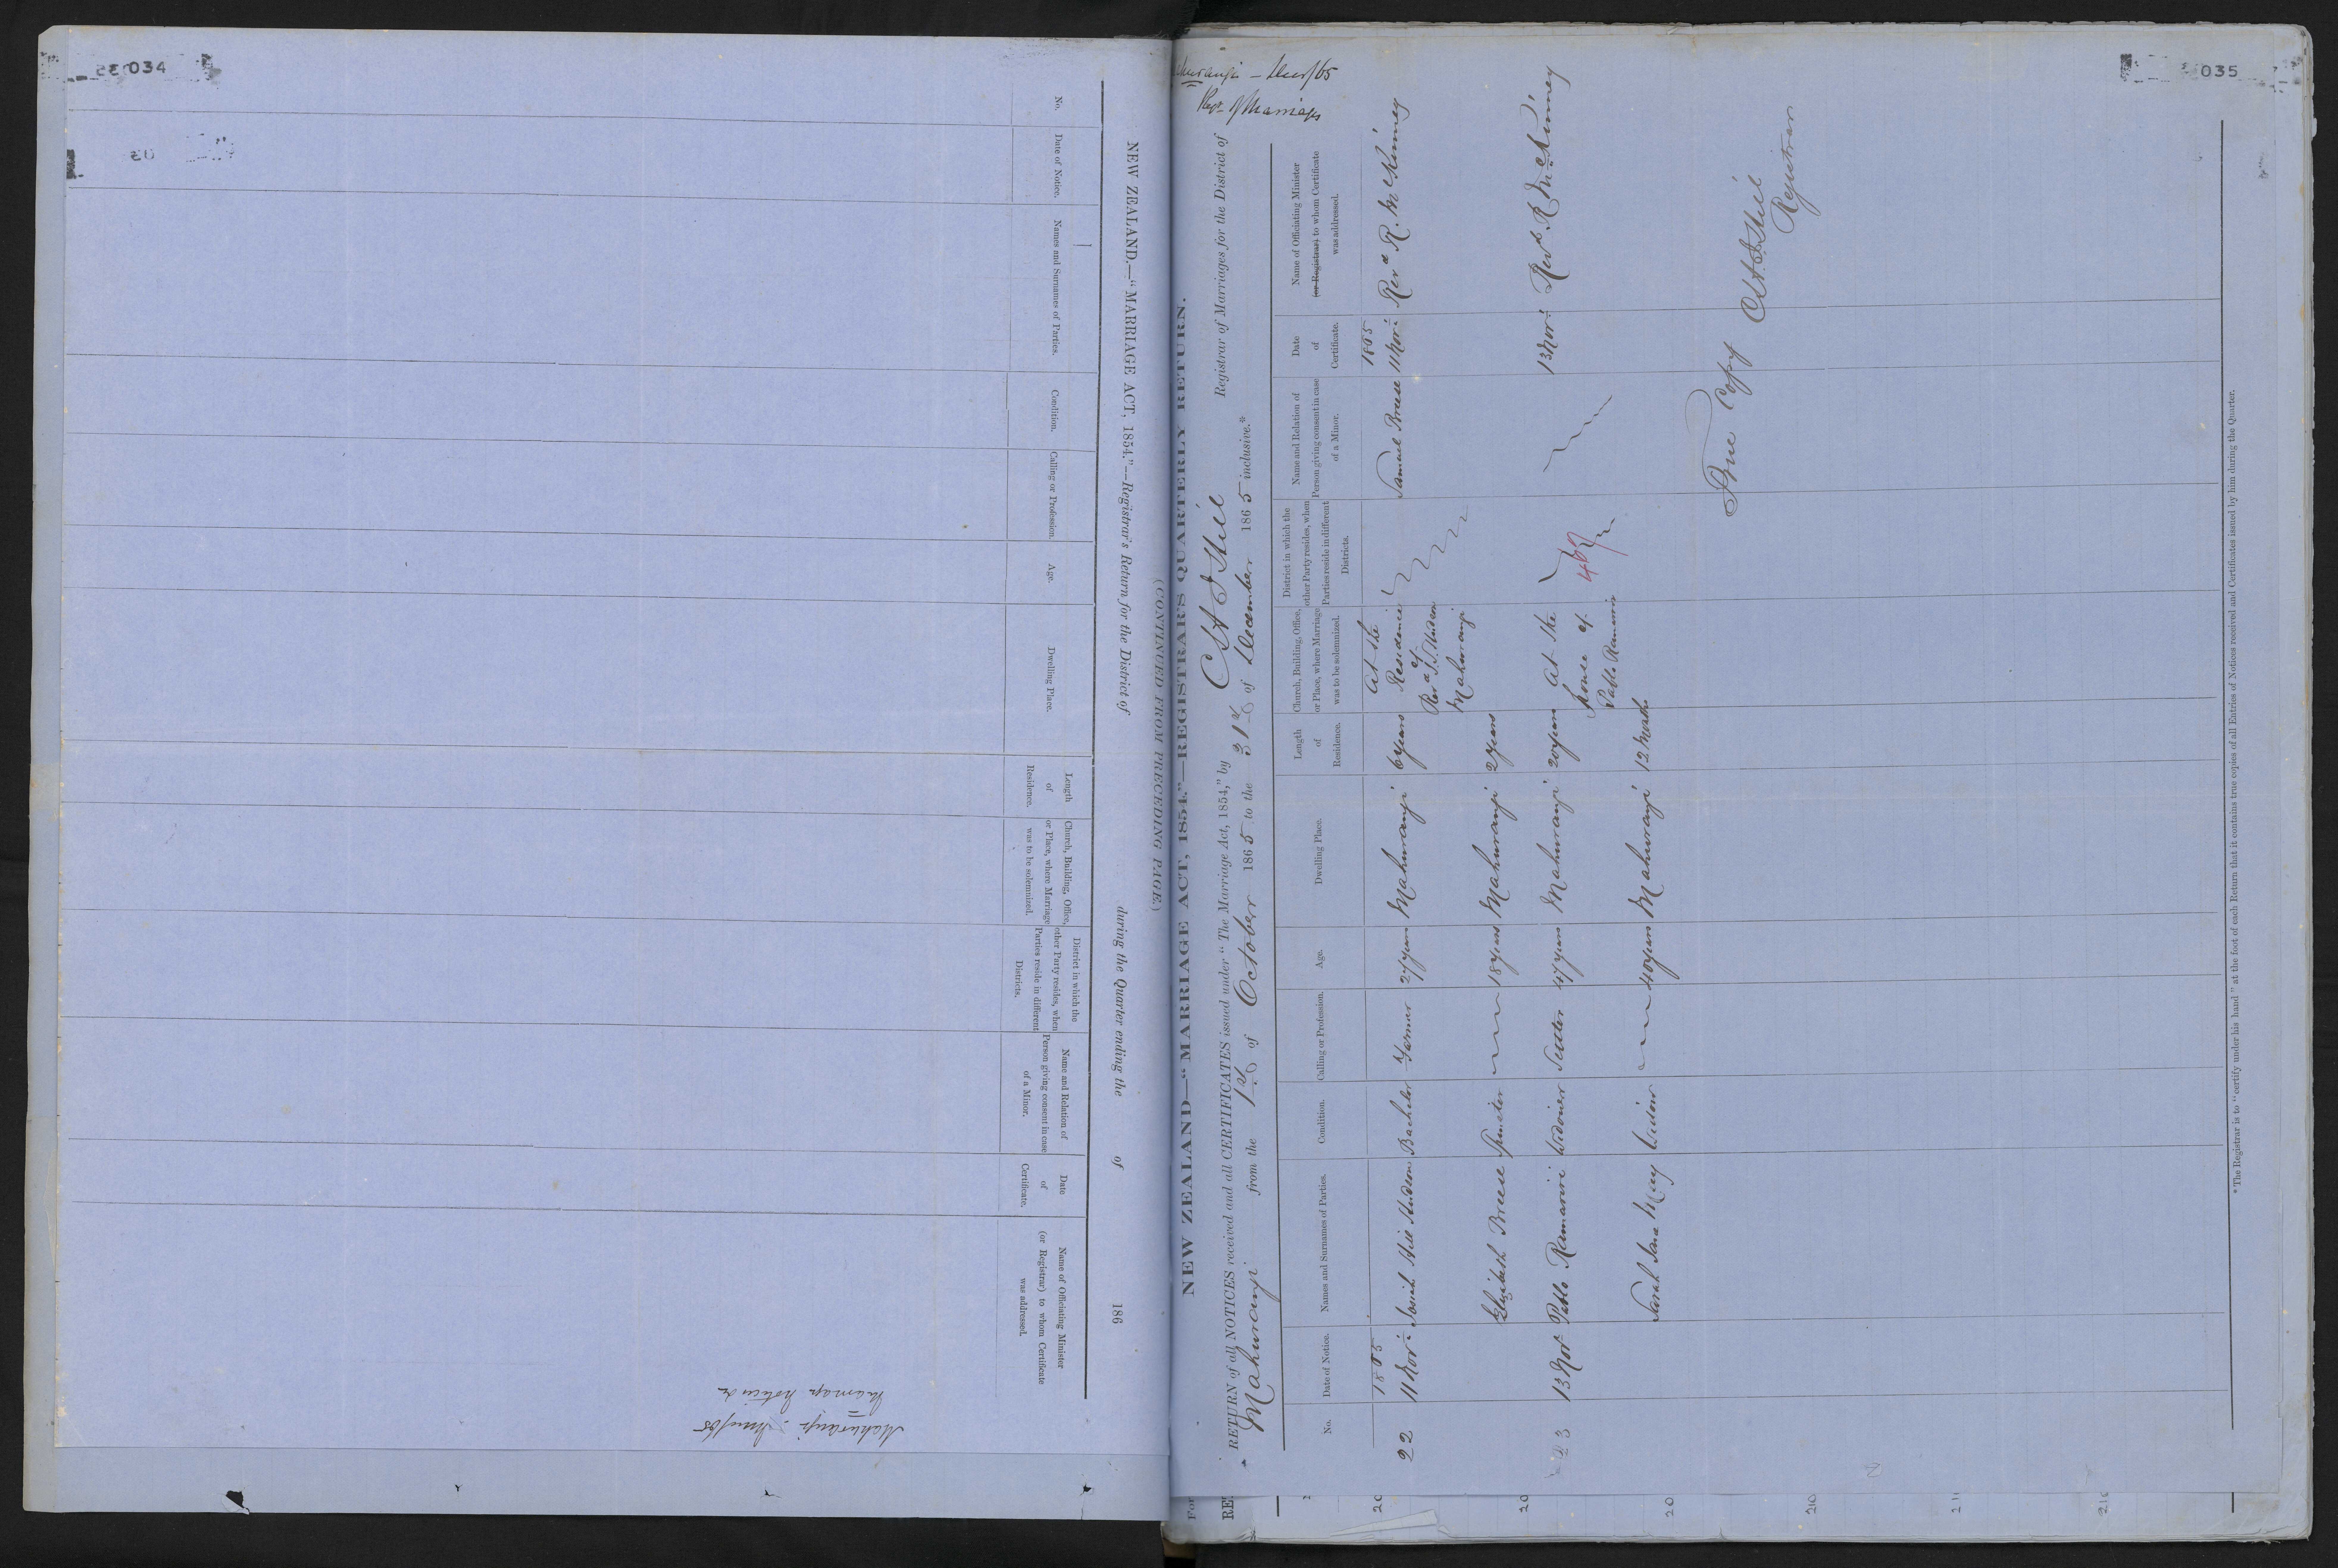 034
NEW ZEALAND.—"MARRIAGE ACT, 1854."—Registrar's Return for the District of during the Quarter ending the of 186
No.
Date of Notice.
Names and Surnames of Parties.
Condition.
Calling or Profession.
Age.
Dwelling Place.
Length of Residence.
Church, Building, Office, or Place, where Marriage was to be solemnized.
District in which the other Party resides, when Parties reside in different Districts.
Name and Relation of Person giving consent in case of a Minor.
Date of Certificate.
Name of Officiating Minister (or Registrar) to whom Certificate was addressed.
Mahurangi
Marriage Notices
(CONTINUED FROM PRECEDING PAGE.)
035
Mahurangi — Decr/65
Regr of Marriages
NEW ZEALAND—"MARRIAGE ACT, 1854."—REGISTRAR'S QUARTERLY RETURN.
RETURN of all NOTICES received and all CERTIFICATES issued under "The Marriage Act, 1854," by Registrar of Marriages for the District of
Mahurangi from the 1st of October 1865 to the 31st of December 1865 inclusive.*
No.
Date of Notice.
Names and Surnames of Parties.
Condition.
Calling or Profession.
Age.
Dwelling Place.
Length of Residence.
Church, Building, Office, or Place, where Marriage was to be solemnized.
District in which the other Party resides, when Parties reside in different Districts.
Name and Relation of Person giving consent in case of a Minor.
Date of Certificate.
Name of Officiating Minister (or Registrar) to whom Certificate was addressed.
1865 At the 1865
22 11 Nov: Smith Hill Hudson Bachelor Farmer 27 years Mahurangi 6 years Residence Samuel Breese 11 Nov: Revd R. McKinney
of
Revd Hudson
Mahurangi
Elizabeth Breese Spinster 18 years Mahurangi 2 years
23 13 Nov Pablo Ramarini Widower Settler 47 years Mahurangi 20 years at the 13 Nov: Revd R McKinney
House of
Pablo Ramarini
467
Sarah Jane May Widow 40 years Mahurangi 12 Months
True Copy
Registrar
* The Registrar is to "certify under his hand" at the foot of each Return that it contains true copies of all Entries of Notices received and Certificates issued by him during the Quarter.